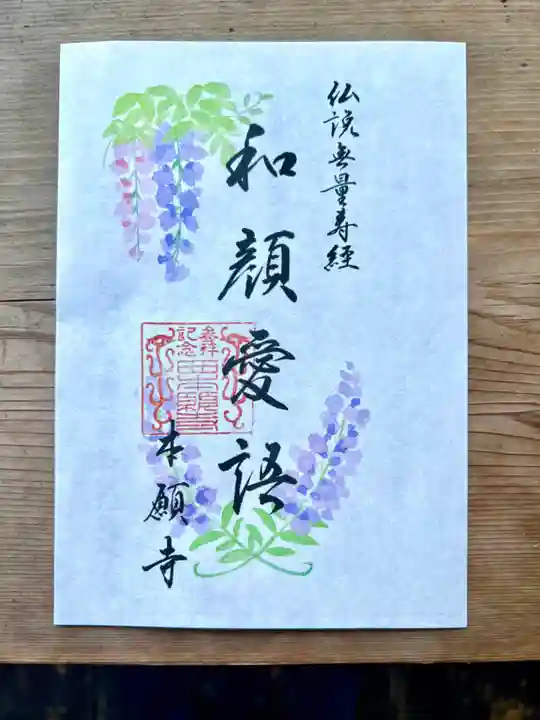 仏説無量寿経
和顔愛語
参拝
記念
本願寺